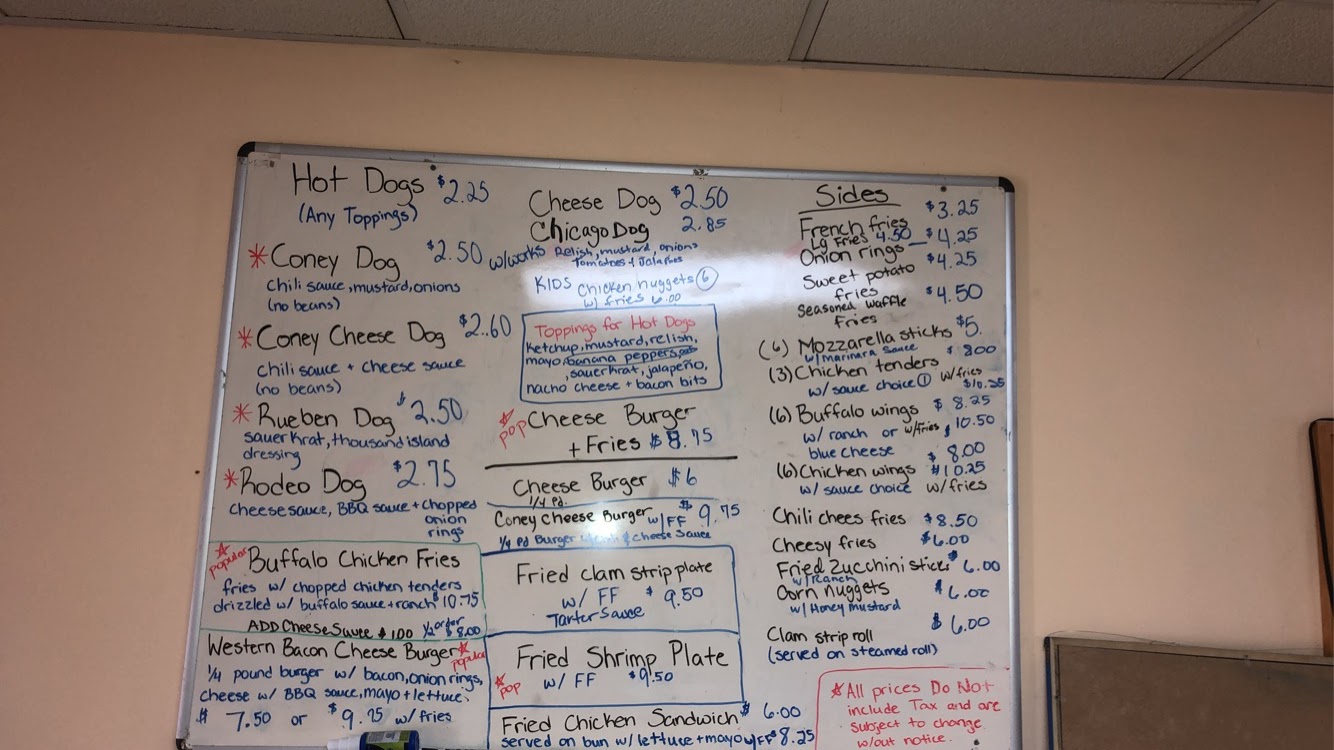 Hot Dogs $2.25
(Any Toppings)
*Coney Dog $2.50
chili sauce, mustard, onions
(no beans)
*Coney Cheese Dog $2.60
chili sauce + cheese sauce
(no beans)
*Rueben Dog $2.50
sauerkrat, thousand island
dressing
*Rodeo Dog $2.75
cheese sauce, BBQ sauce + chopped
onion
rings
popular Buffalo Chicken Fries
fries w/ chopped chicken tenders
drizzled w/ buffalo sauce + ranch $10.75
ADD Cheese Sauce $1.00 1/2 order $8.00
Western Bacon Cheese Burger popular
1/4 pound burger w/ bacon, onion rings,
cheese w/ BBQ sauce, mayo + lettuce.
$ 7.50 or $9.75 w/ fries
Cheese Dog $2.50
Chicago Dog 2.85
w/works Relish, mustard, onions
Tomatoes +
KIDS Chicken nuggets (6)
w/ fries 6.00
Toppings for Hot Dogs
Ketchup, mustard, relish,
mayo, banana peppers,
sauerkrat, jalapeño,
nacho cheese + bacon bits
pop Cheese Burger
+ Fries $8.75
Cheese Burger $6
1/4 Pd.
Coney Cheese Burger w/FF $9.75
1/4 Pd Burger & Cheese Sauce
Fried clam strip plate
w/ FF $9.50
Tarter Sauce
Fried Shrimp Plate
pop w/ FF $9.50
Fried Chicken Sandwich $6.00
served on bun w/ lettuce + mayo w/FF $8.25
Sides
French fries $3.25
Lg Fries 4.50
Onion rings $4.25
Sweet potato $4.25
fries
Seasoned Waffle $4.50
Fries
(6) Mozzarella sticks $5.
w/ marinara Sauce
(3) Chicken tenders $8.00
w/ sauce choice (1) w/ fries
$10.25
(6) Buffalo wings $8.25
w/ ranch or w/fries $10.50
blue cheese
(6) Chicken wings $8.00
$10.25
w/ sauce choice w/ fries
Chili chees fries $8.50
Cheesy fries $6.00
Fried Zucchini sticks $6.00
w/ Ranch
Corn nuggets $6.00
w/ Honey mustard
Clam strip roll $6.00
(served on steamed roll)
*All prices Do Not
include Tax and are
subject to change
w/out notice.